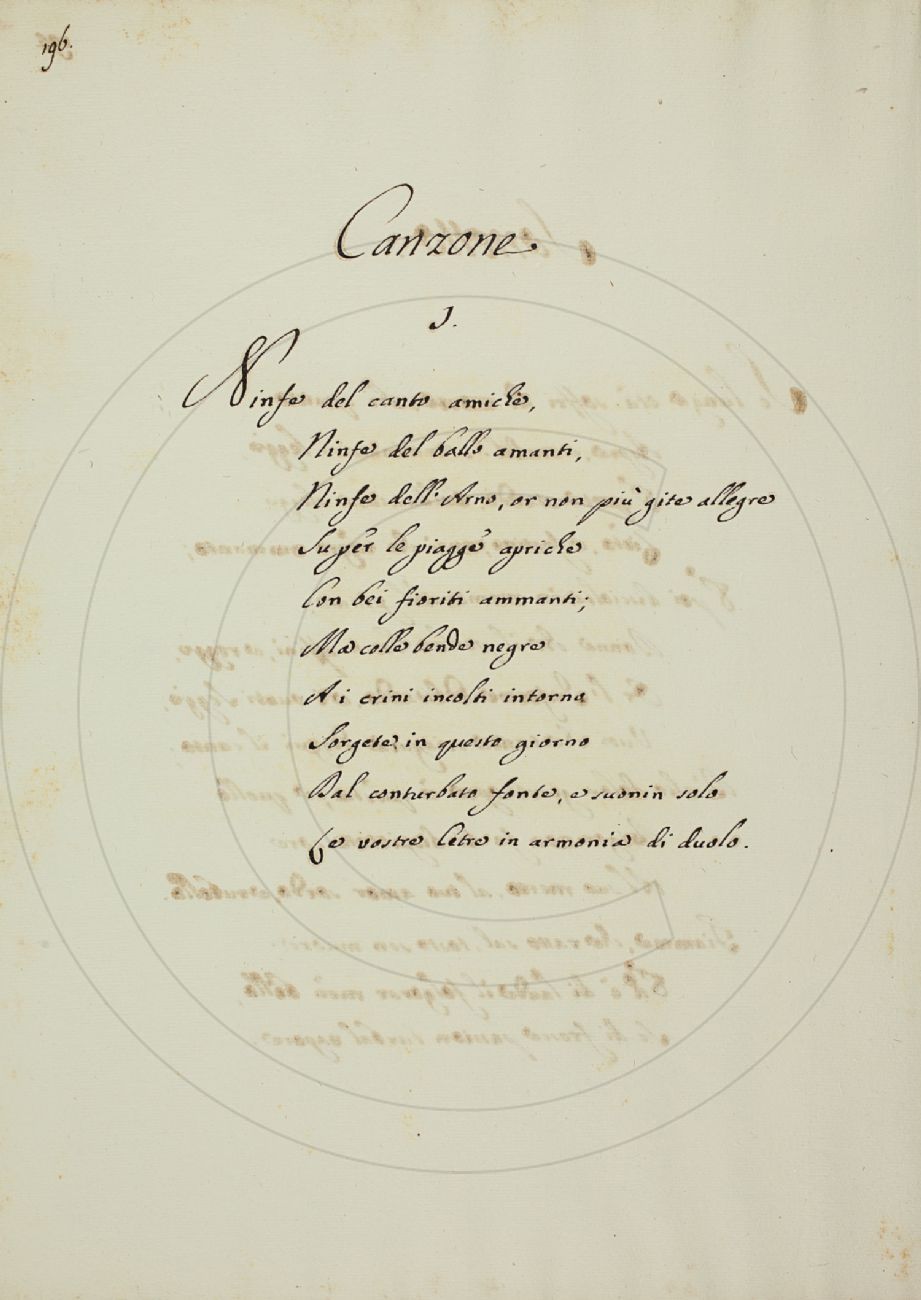 196.
Canzone.
I.
Ninfe del canto amiche,
Ninfe del ballo amanti,
Ninfe dell'Arno, or non più gite allegre
Su per le piagge apriche
Con bei fioriti ammanti;
Ma colle bende negre
A i crini incolti intorno
Sorgete in questo giorno
Dal conturbato fonte, e suonin solo
Le vostre Cetre in armonia di duolo.